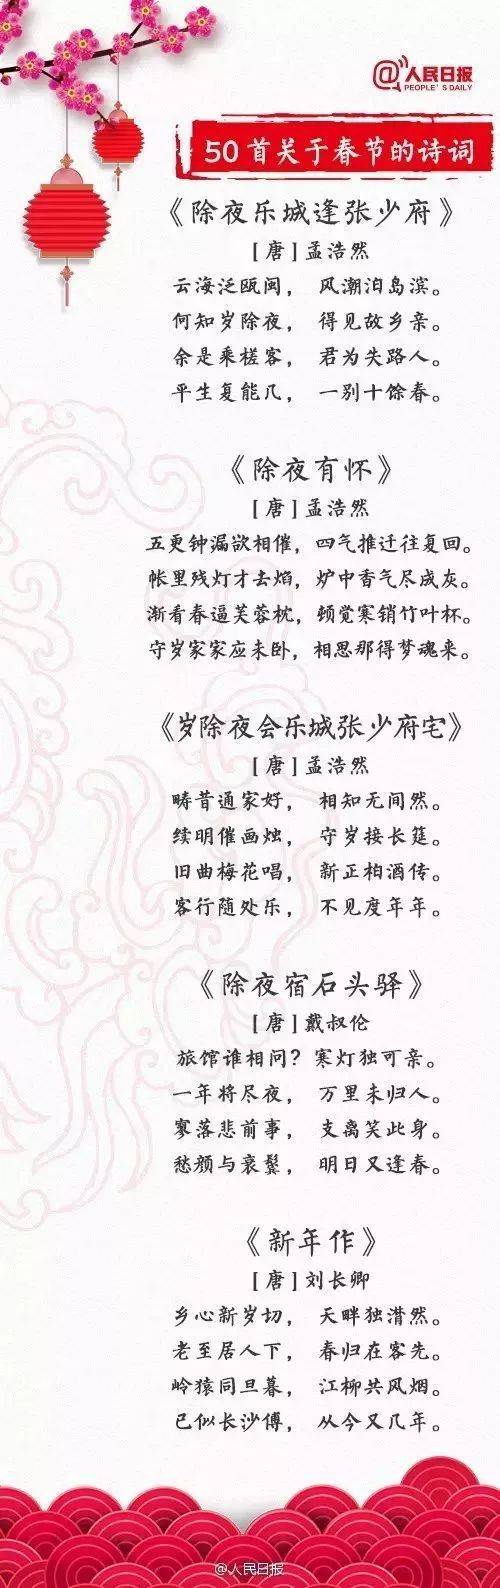 @人民日报
PEOPLE'S DAILY
50首关于春节的诗词
《除夜乐城逢张少府》
[唐]孟浩然
云海泛瓯闽， 风潮泊岛滨。
何知岁除夜， 得见故乡亲。
余是乘槎客， 君为失路人。
平生复能几， 一别十馀春。
《除夜有怀》
[唐]孟浩然
五更钟漏欲相催，四气推迁往复回。
帐里残灯才去焰，炉中香气尽成灰。
渐看春逼芙蓉枕，顿觉寒销竹叶杯。
守岁家家应未卧，相思那得梦魂来。
《岁除夜会乐城张少府宅》
[唐]孟浩然
畴昔通家好， 相知无间然。
续明催画烛， 守岁接长筵。
旧曲梅花唱， 新正柏酒传。
客行随处乐， 不见度年年。
《除夜宿石头驿》
[唐]戴叔伦
旅馆谁相问？寒灯独可亲。
一年将尽夜， 万里未归人。
寥落悲前事， 支离笑此身。
愁颜与衰鬓， 明日又逢春。
《新年作》
[唐]刘长卿
乡心新岁切， 天畔独潸然。
老至居人下， 春归在客先。
岭猿同旦暮， 江柳共风烟。
已似长沙傅， 从今又几年。
@人民日报